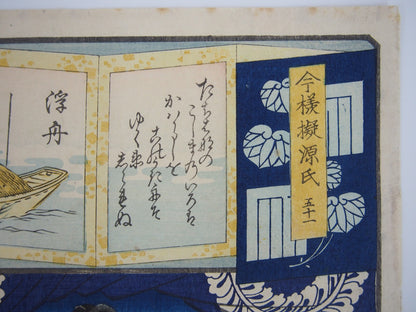 今様擬源氏
五十一
たちはなの
こしまのいろは
かはらしを
このうき舟そ
ゆくゑ
しられぬ
浮舟